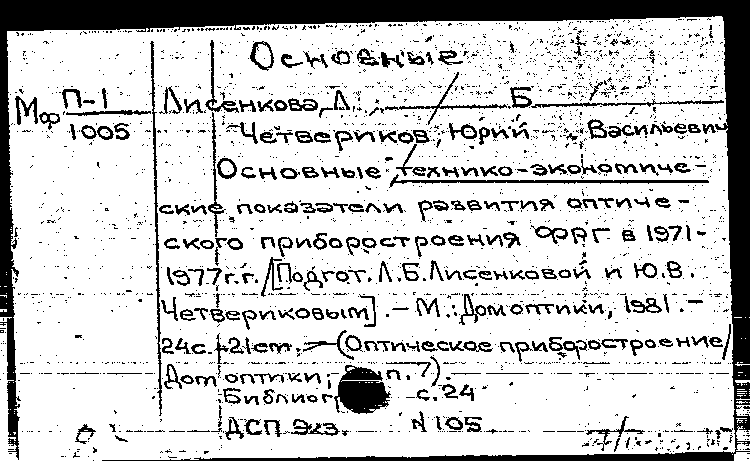 Основные
Мф П-1 Лисенкова, Л. Б
1005 Четвериков, Юрий Васильевич
Основные технико-экономиче-
ские показатели развития оптиче-
ского приборостроения ФРГ в 1971-
1977 г.г. / [Подгот. Л.Б. Лисенковой и Ю.В.
Четвериковым]. - М.: Дом оптики, 1981. -
24с. 21см. - (Оптическое приборостроение /
Дом оптики; п. 7).
Библиогр с. 24
ДСП Экз. N 105